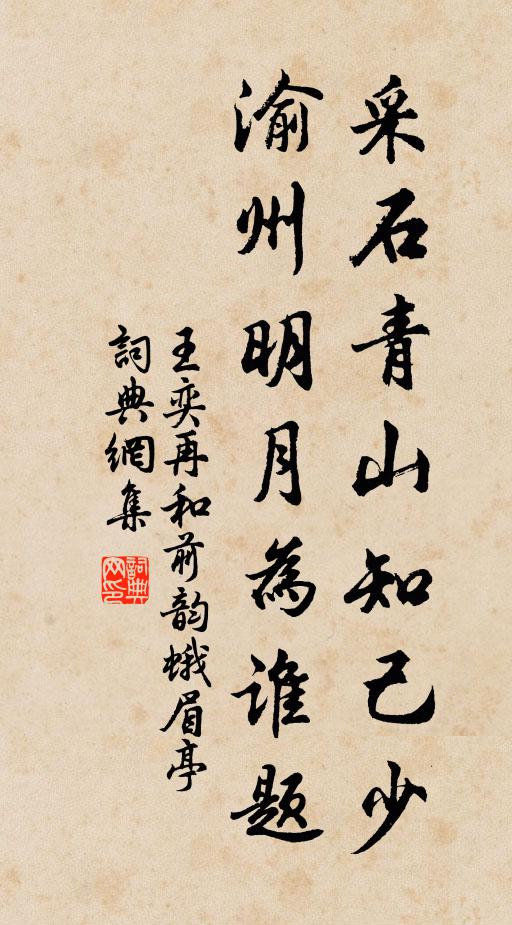 采石青山知己少
渝州明月為誰題
王奕再和前韵蛾眉亭
詞典網集
詞典
网印